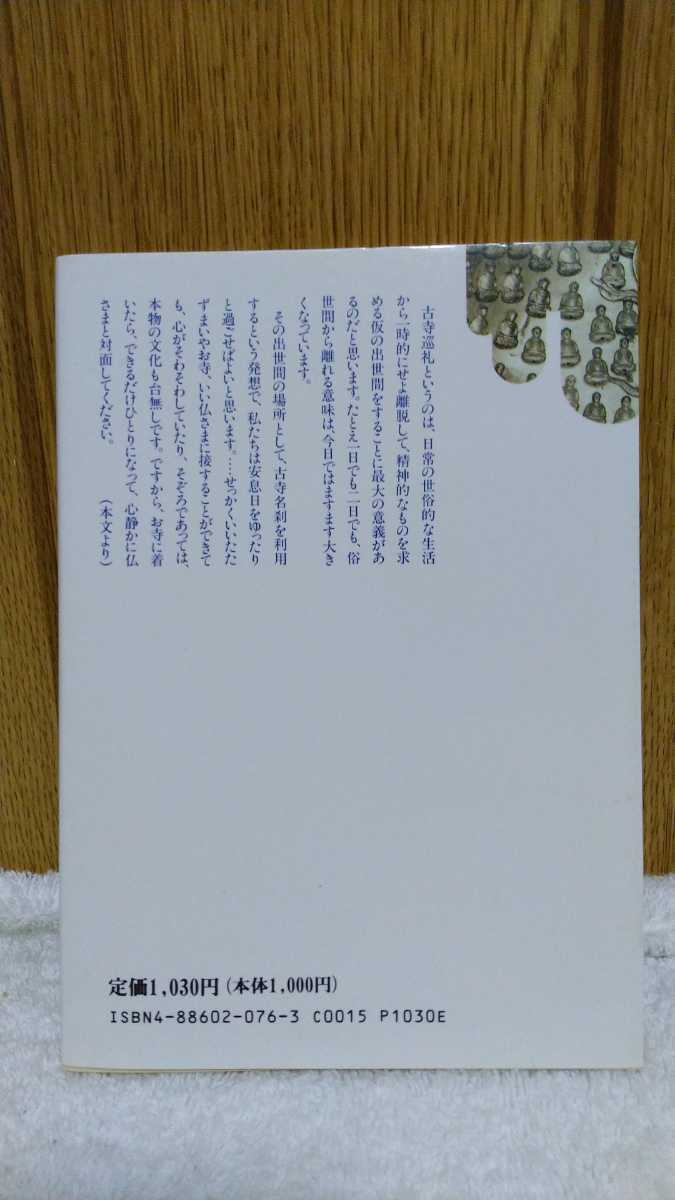 古寺巡礼というのは、日常の世俗的な生活
から一時的にせよ離脱して、精神的なものを求
める仮の出世間をすることに最大の意義があ
るのだと思います。たとえ一日でも二日でも、俗
世間から離れる意味は、今日ではますます大き
くなっています。
その出世間の場所として、古寺名刹を利用
するという発想で、私たちは安息日をゆったり
と過ごせばよいと思います。……せっかくいいたた
ずまいやお寺、いい仏さまに接することができて
も、心がそわそわしていたり、そぞろであっては、
本物の文化も台無しです。ですから、お寺に着
いたら、できるだけひとりになって、心静かに仏
さまと対面してください。
（本文より）
定価1,030円（本体1,000円）
ISBN4-88602-076-3 C0015 P1030E